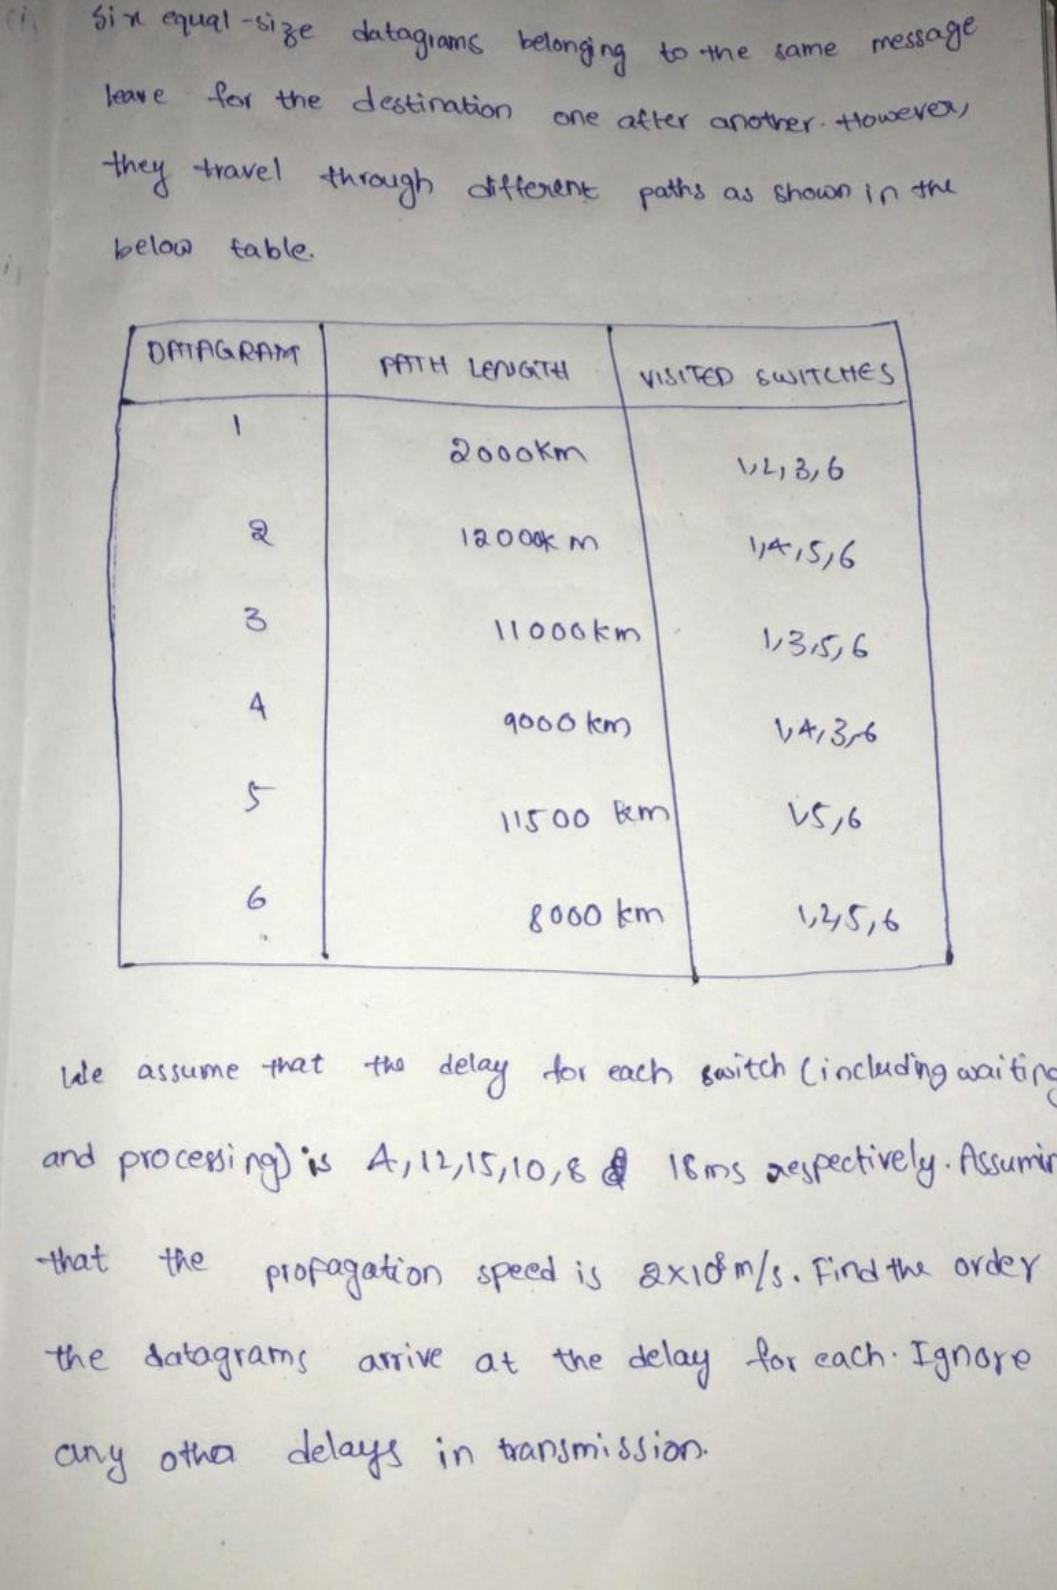 (i)
Six equal-size datagrams belonging to the same message
leave for the destination one after another. However,
they travel through different paths as shown in the
below table.
DATAGRAM PATH LENGTH VISITED SWITCHES
1 2000km 1,2,3,6
2 12000km 1,4,5,6
3 11000km 1,3,5,6
4 9000 km 1,4,3,6
5 11500 km 1,5,6
6 8000 km 1,2,5,6
We assume that the delay for each switch (including waiting
and processing) is 4,12,15,10,8 & 18ms respectively. Assumin
that the propagation speed is 2x10⁸m/s. Find the order
the datagrams arrive at the delay for each. Ignore
any otha delays in transmission.